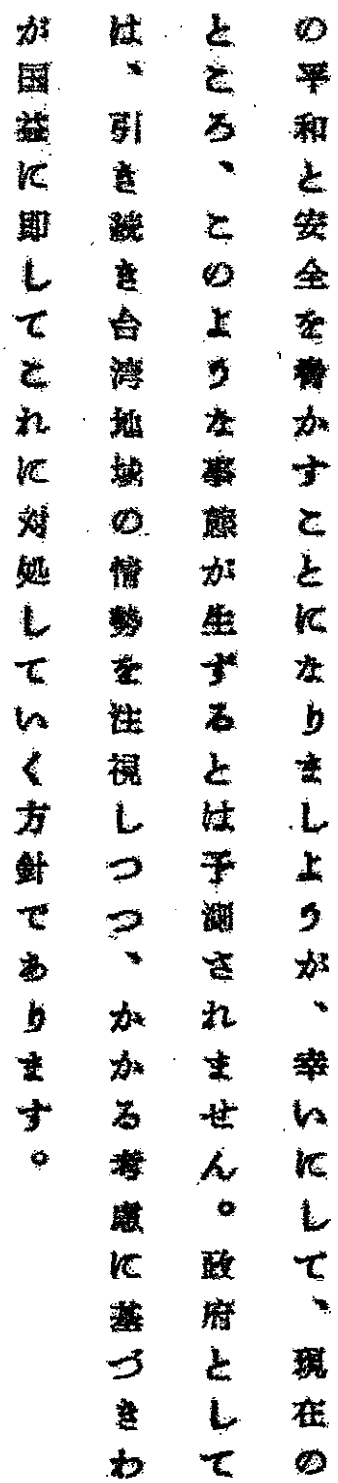 の平和と安全を脅かすことになりましようが、幸いにして、現在の
ところ、このような事態が生ずるとは予測されません。政府として
は、引き続き台湾地域の情勢を注視しつつ、かかる考慮に基づきわ
が国益に即してこれに対処していく方針であります。